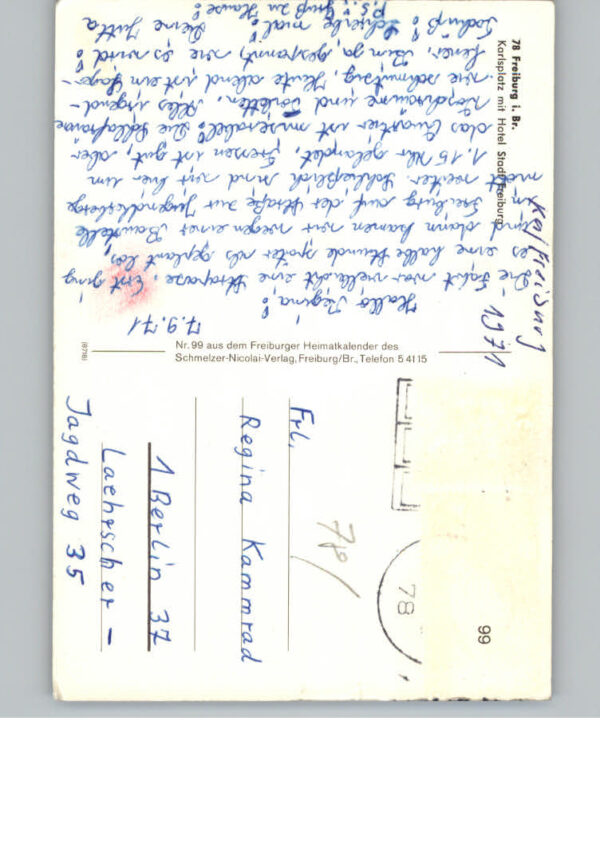 78 Freiburg i. Br.
Karlsplatz mit Hotel Stadt Freiburg
Kaj/Freiburg
1971
7.9.71
Hallo Regina!
Die Fahrt war vielleicht eine Strapaze. Erst ging
es eine halbe Stunde später als geplant los,
und dann kamen wir wegen einer Baustelle
in Freiburg auf der Straße zur Jugendherberge
nicht weiter. Schließlich sind wir hier um
1.15 Uhr gelandet. Fressen ist gut, aber
das Quartier ist miserabel! Die Schlafräume
u. Waschräume und Toiletten. Alles irgend-
wie schmutzig. Heute abend ist ein Lager-
feuer. Bin ja gespannt, wie es wird!
Tschüß! Schreibe mal! Deine Jutta
P.S.: Gruß zu Hause!
Nr. 99 aus dem Freiburger Heimatkalender des
Schmelzer-Nicolai-Verlag, Freiburg/Br., Telefon 5 41 15
(8718)
Frl.
Regina Kammrad
1 Berlin 37
Laehrscher-
Jagdweg 35
70/
78
99